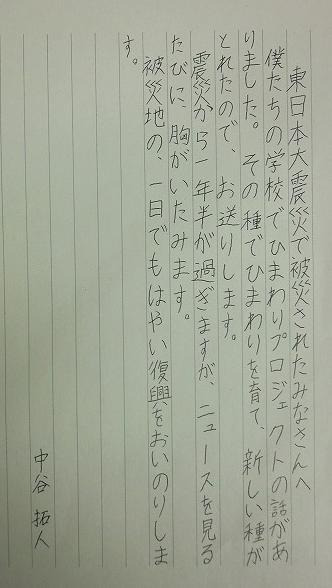 東日本大震災で被災されたみなさんへ
僕たちの学校でひまわりプロジェクトの話があ
りました。その種でひまわりを育て、新しい種が
とれたので、お送りします。
震災から一年半が過ぎますが、ニュースを見る
たびに、胸がいたみます。
被災地の、一日でもはやい復興をおいのりしま
す。
中谷 拓人